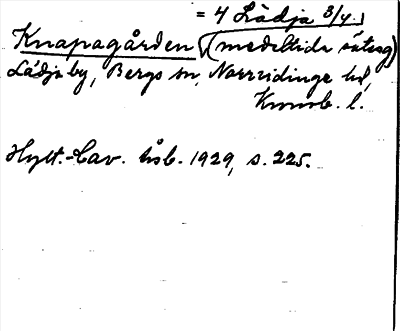 = 4 Lädja 3/4
Knapagården (medeltida säteg)
Lädja by, Bergs sn, Norrvidinge hd,
Kronob. l.
Hylt.-Cav. Åsb. 1929, s. 225.